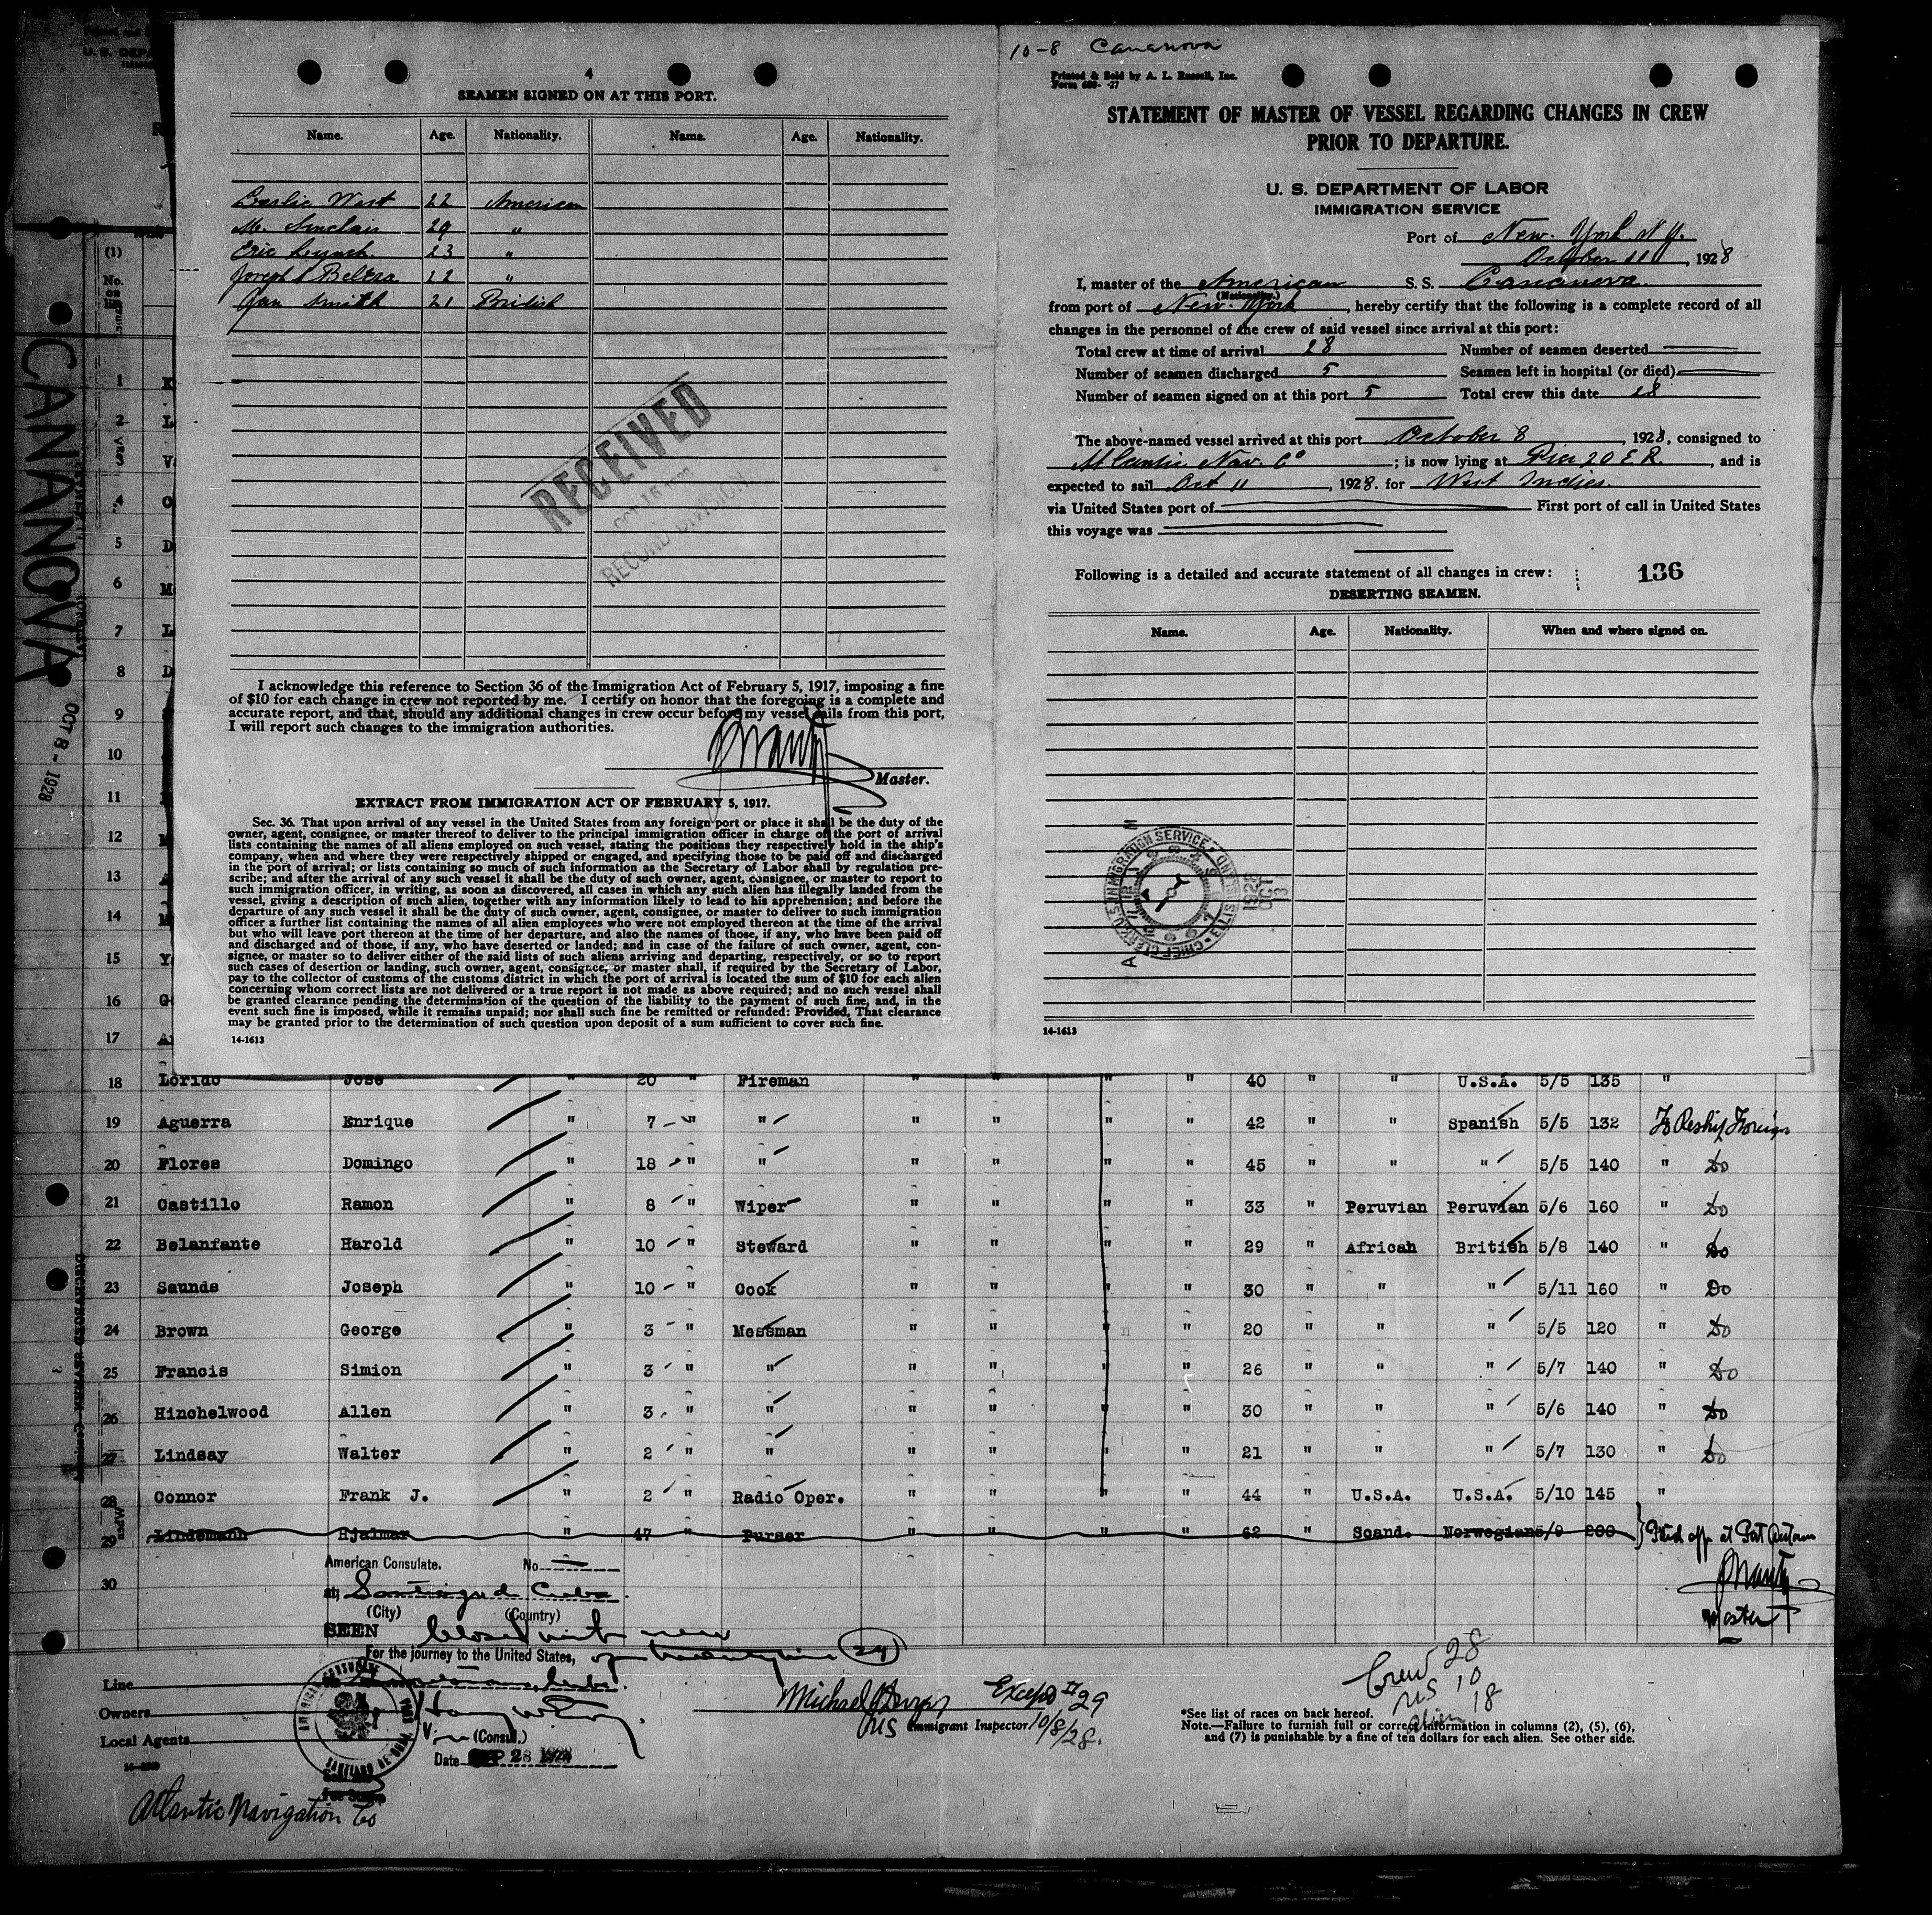 4
SEAMEN SIGNED ON AT THIS PORT.
Name. Age. Nationality. Name. Age. Nationality.
Leslie West 22 American
M. Sinclair 29 "
Eric Lynch 23 "
Joseph Beltra 22 "
Jan Smith 21 British
RECEIVED
RECORD DIVISION
I acknowledge this reference to Section 36 of the Immigration Act of February 5, 1917, imposing a fine
of $10 for each change in crew not reported by me. I certify on honor that the foregoing is a complete and
accurate report, and that, should any additional changes in crew occur before my vessel sails from this port,
I will report such changes to the immigration authorities.
Master.
EXTRACT FROM IMMIGRATION ACT OF FEBRUARY 5, 1917.
Sec. 36. That upon arrival of any vessel in the United States from any foreign port or place it shall be the duty of the
owner, agent, consignee, or master thereof to deliver to the principal immigration officer in charge of the port of arrival
lists containing the names of all aliens employed on such vessel, stating the positions they respectively hold in the ship's
company, when and where they were respectively shipped or engaged, and specifying those to be paid off and discharged
in the port of arrival; or lists containing so much of such information as the Secretary of Labor shall by regulation pre-
scribe; and after the arrival of any such vessel it shall be the duty of such owner, agent, consignee, or master to report to
such immigration officer, in writing, as soon as discovered, all cases in which any such alien has illegally landed from the
vessel, giving a description of such alien, together with any information likely to lead to his apprehension; and before the
departure of any such vessel it shall be the duty of such owner, agent, consignee, or master to deliver to such immigration
officer a further list containing the names of all alien employees who were not employed thereon at the time of the arrival
but who will leave port thereon at the time of her departure, and also the names of those, if any, who have been paid off
and discharged and of those, if any, who have deserted or landed; and in case of the failure of such owner, agent, con-
signee, or master so to deliver either of the said lists of such aliens arriving and departing, respectively, or so to report
such cases of desertion or landing, such owner, agent, consignee, or master shall, if required by the Secretary of Labor,
pay to the collector of customs of the customs district in which the port of arrival is located the sum of $10 for each alien
concerning whom correct lists are not delivered or a true report is not made as above required; and no such vessel shall
be granted clearance pending the determination of the question of the liability to the payment of such fine, and, in the
event such fine is imposed, while it remains unpaid; nor shall such fine be remitted or refunded: Provided, That clearance
may be granted prior to the determination of such question upon deposit of a sum sufficient to cover such fine.
14-1613
10-8 Cananova
Printed & Sold by A. L. Russell, Inc.
STATEMENT OF MASTER OF VESSEL REGARDING CHANGES IN CREW
PRIOR TO DEPARTURE.
U. S. DEPARTMENT OF LABOR
IMMIGRATION SERVICE
Port of New York N.Y.
October 11, 1928
I, master of the American S. S. Cananova
(Nationality.)
from port of New York, hereby certify that the following is a complete record of all
changes in the personnel of the crew of said vessel since arrival at this port:
Total crew at time of arrival 28 Number of seamen deserted
Number of seamen discharged 5 Seamen left in hospital (or died)
Number of seamen signed on at this port 5 Total crew this date 28
The above-named vessel arrived at this port October 8, 1928, consigned to
Atlantic Nav. Co; is now lying at Pier 20 E R., and is
expected to sail Oct 11, 1928. for West Indies.
via United States port of First port of call in United States
this voyage was
Following is a detailed and accurate statement of all changes in crew: 136
DESERTING SEAMEN.
Name. Age. Nationality. When and where signed on.
U.S. IMMIGRATION SERVICE ELLIS ISLAND CHIEF CLERK
1928 OCT 13
14-1613
CANANOVA OCT 8 - 1928
(1)
No. on list
1
2
3
4
5
6
7
8
9
10
11
12
13
14
15
16
17
18 Lorido Jose " 20 " Fireman " " " " 40 " " U.S.A. 5/5 135 "
19 Aguerra Enrique " 7 " " " " " " 42 " " Spanish 5/5 132 To Reship Foreign
20 Flores Domingo " 18 " " " " " " 45 " " " 5/5 140 " Do
21 Castillo Ramon " 8 " Wiper " " " " 33 " Peruvian Peruvian 5/6 160 " Do
22 Belanfante Harold " 10 " Steward " " " " 29 " African British 5/8 140 " Do
23 Saunds Joseph " 10 " Cook " " " " 30 " " " 5/11 160 Do
24 Brown George " 3 " Messman " " " " 20 " " " 5/5 120 " Do
25 Francis Simion " 3 " " " " " " 26 " " " 5/7 140 " Do
26 Hinchelwood Allen " 3 " " " " " " 30 " " " 5/6 140 " Do
27 Lindsay Walter " 2 " " " " " " 21 " " " 5/7 130 " Do
28 Connor Frank J. " 2 " Radio Oper. " " " " 44 " U.S.A. U.S.A. 5/10 145 "
29 Lindemann Hjalmar " 47 " Purser " " " " 62 " Scand. Norwegian 5/9 200 Paid off at Port Antonio
30
Master
American Consulate. No.
at Santiago de Cuba
(City) (Country)
SEEN
For the journey to the United States, (29)
Line
Owners
Local Agents
(Consul.)
Date SEP 28 1928
Atlantic Navigation Co
Michael
Except #29
US Immigrant Inspector 10/8/28.
Crew 28
US 10
Alien 18
*See list of races on back hereof.
Note.—Failure to furnish full or correct information in columns (2), (5), (6),
and (7) is punishable by a fine of ten dollars for each alien. See other side.